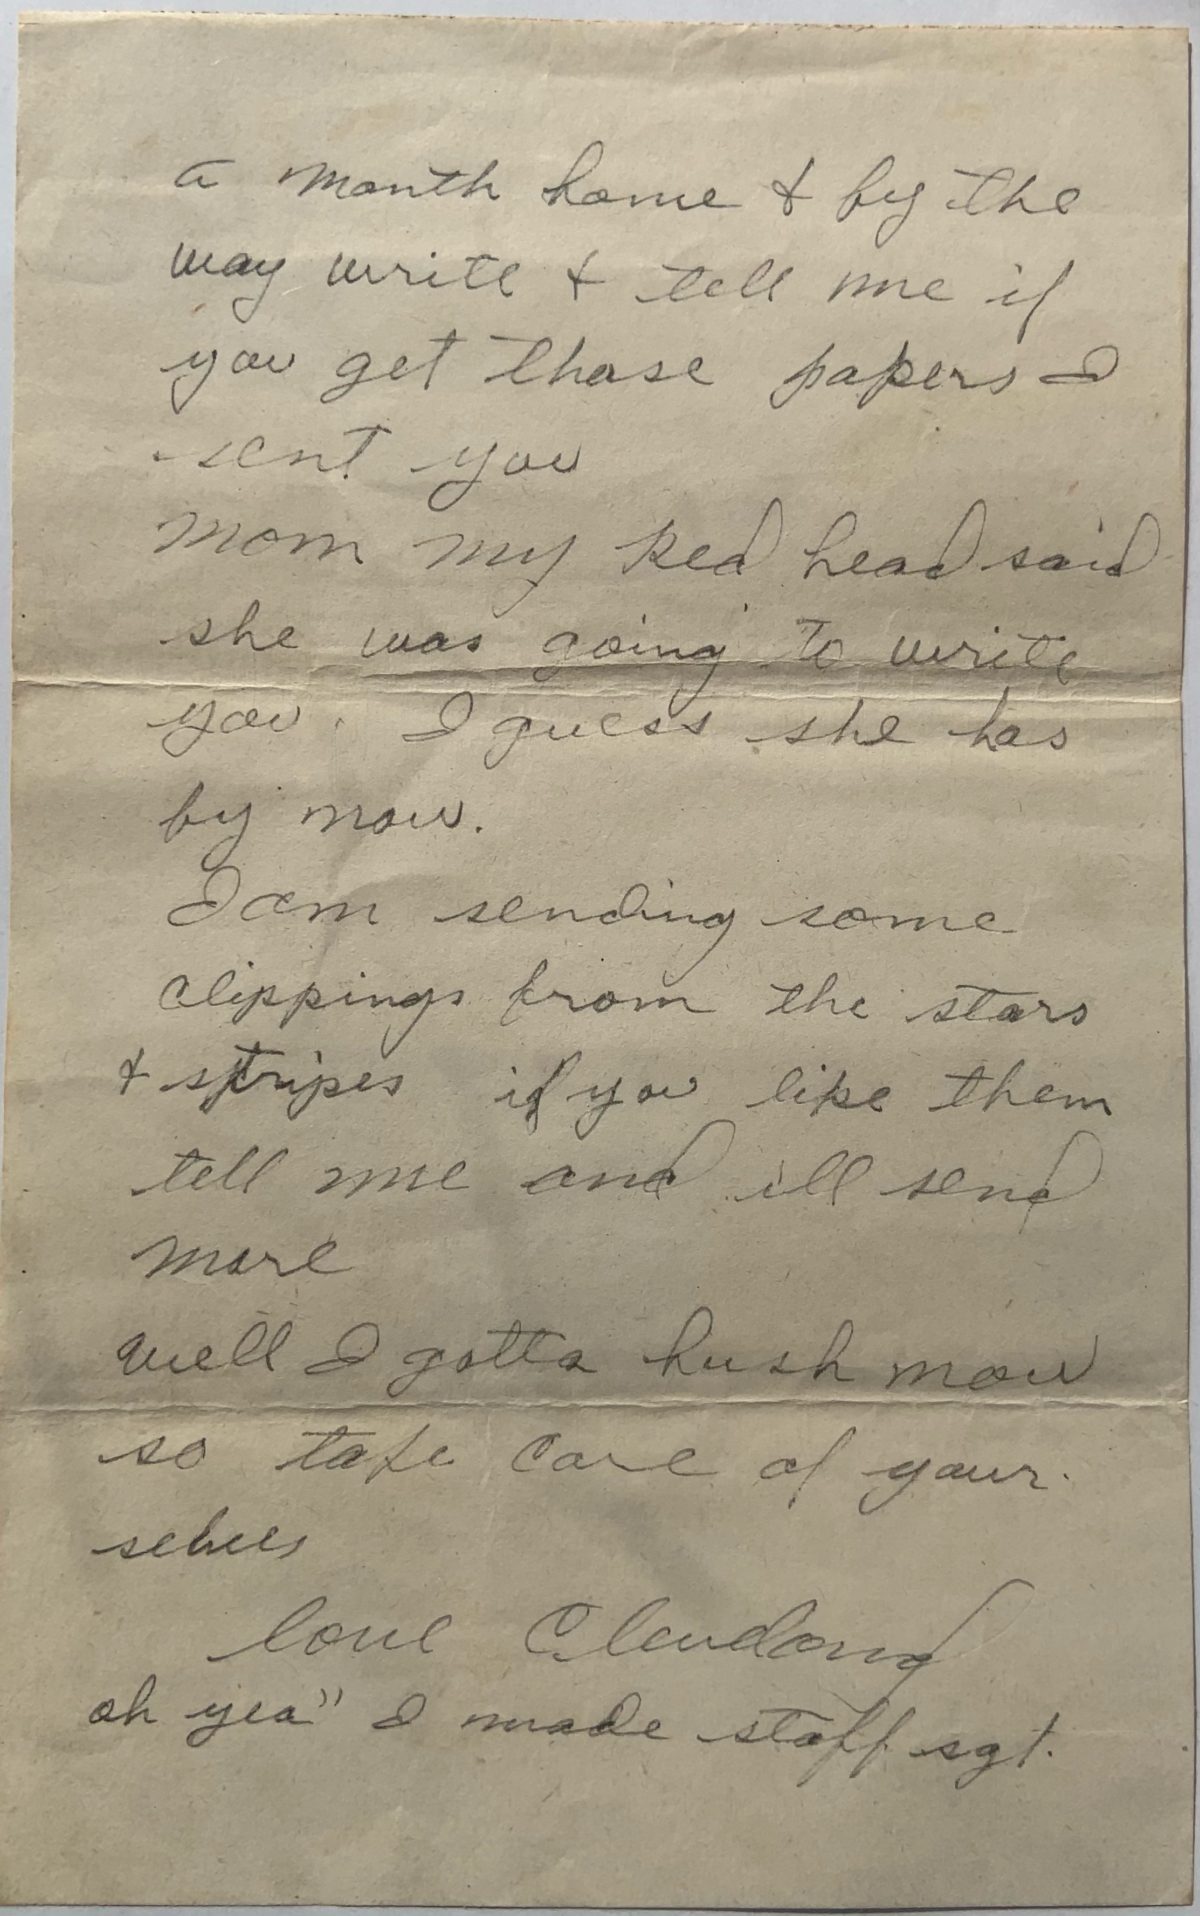 a month home & by the
way write & tell me if
you get those papers I
sent you
Mom my Red head said
she was going to write
you. I guess she has
by now.
I am sending some
clippings from the stars
& stripes if you like them
tell me and ill send
more
well I gotta hush now
so take care of your
selves
love
oh yea" I made staff sgt.